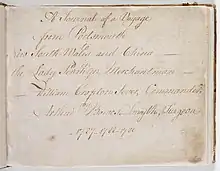 A Journal of a Voyage
from Portsmouth
New South Wales and China —
the Lady Penrhyn, Merchantman —
— William Cropton Sever, Commander
Arthur Bowes, Smyth, Surgeon
— 1787. 1788. 1789